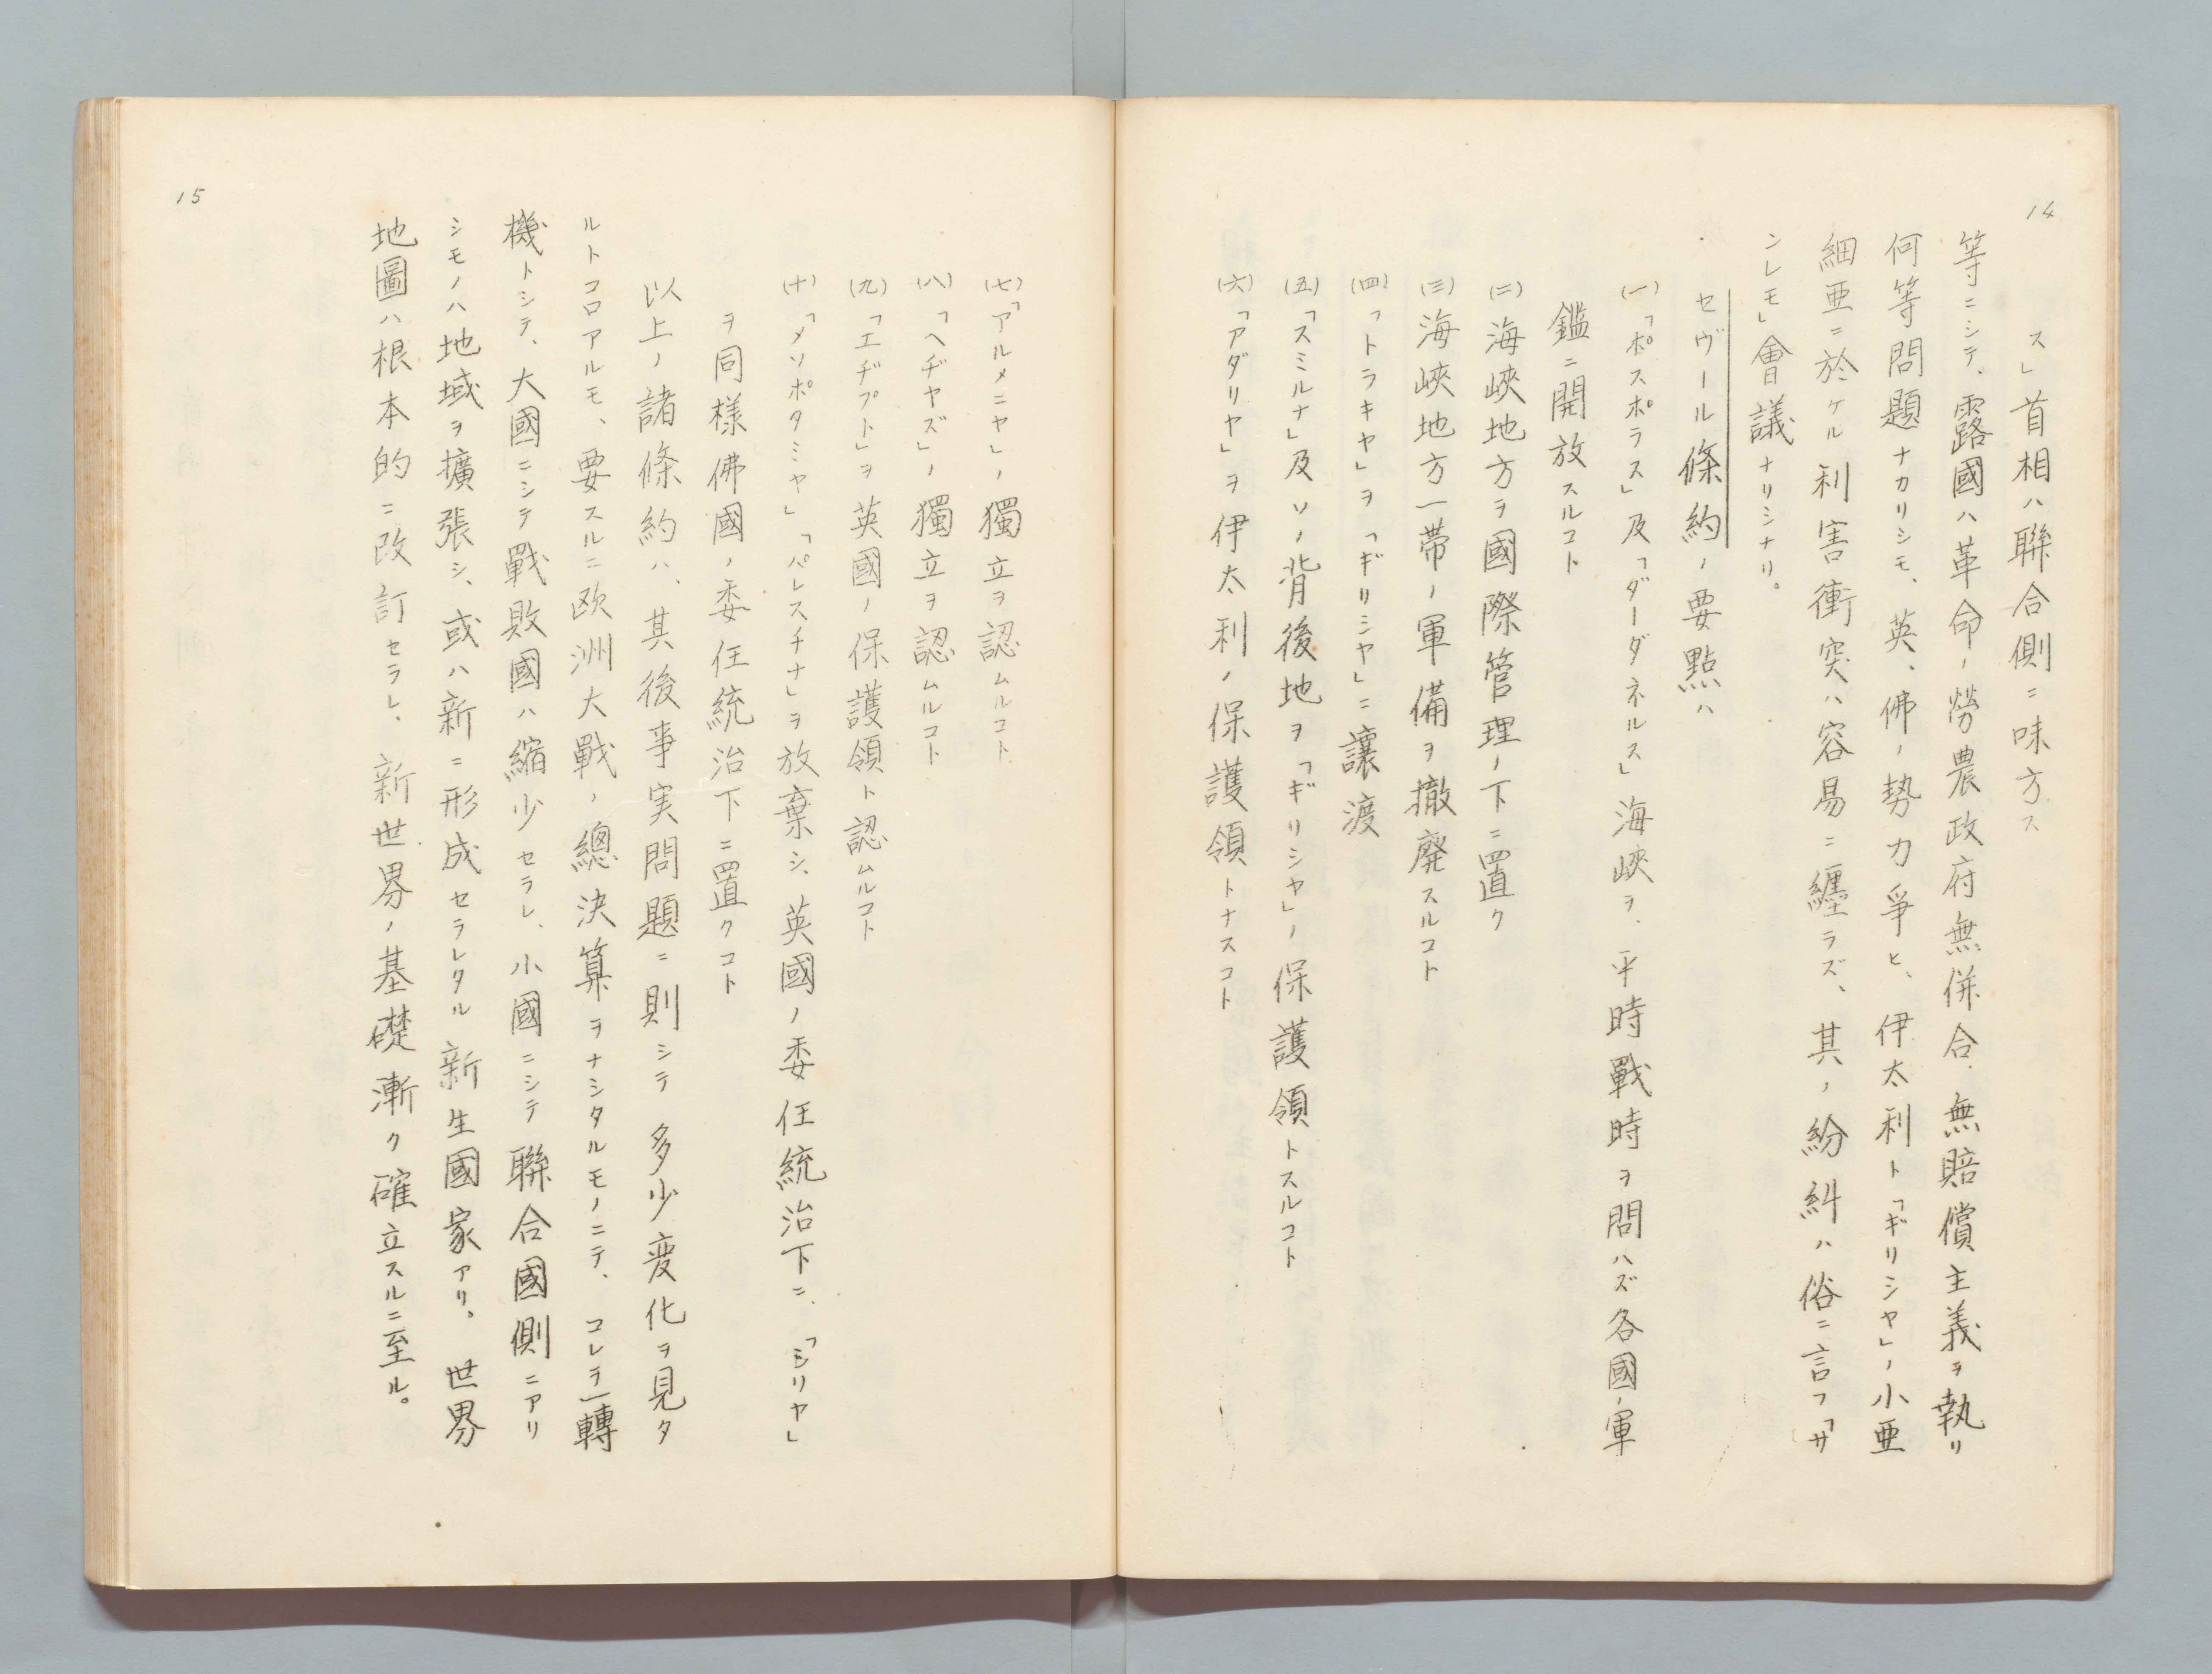 14
ス」首相ハ聯合側ニ味方ス
等ニシテ、露國ハ革命ノ勞農政府無併合、無賠償主義ヲ執リ
何等問題ナカリシモ、英、佛ノ勢力爭ヒ、伊太利ト「ギリシヤ」ノ小亜
細亜ニ於ケル利害衝突ハ容易ニ纒ラズ、其ノ紛糾ハ俗ニ言フ「サ
ンレモ」會議ナリシナリ。
セヴール條約ノ要點ハ
(一)「ボスポラス」及「ダーダネルス」海峡ヲ、平時戰時ヲ問ハズ各國ノ軍
鑑ニ開放スルコト
(二)海峽地方ヲ國際管理ノ下ニ置ク
(三)海峽地方一帯ノ軍備ヲ撤廃スルコト
(四)「トラキヤ」ヲ「ギリシヤ」ニ讓渡
(五)「スミルナ」及ソノ背後地ヲ「ギリシヤ」ノ保護領トスルコト
(六)「アダリヤ」ヲ伊太利ノ保護領トナスコト
15
(七)「アルメニヤ」ノ獨立ヲ認ムルコト
(八)「ヘヂヤズ」ノ獨立ヲ認ムルコト
(九)「エヂプト」ヲ英國ノ保護領ト認ムルコト
(十)「メソポタミヤ」「パレスチナ」ヲ放棄シ、英國ノ委任統治下ニ、「シリヤ」
ヲ同樣佛國ノ委任統治下ニ置クコト
以上ノ諸條約ハ、其後事実問題ニ則シテ多少変化ヲ見タ
ルトコロアルモ、要スルニ欧洲大戰ノ總決算ヲナシタルモノニテ、コレヲ一轉
機トシテ、大國ニシテ戰敗國ハ縮少セラレ、小國ニシテ聯合國側ニアリ
シモノハ地域ヲ擴張シ、或ハ新ニ形成セラレタル新生國家アリ。世界
地圖ハ根本的ニ改訂セラレ、新世界ノ基礎漸ク確立スルニ至ル。